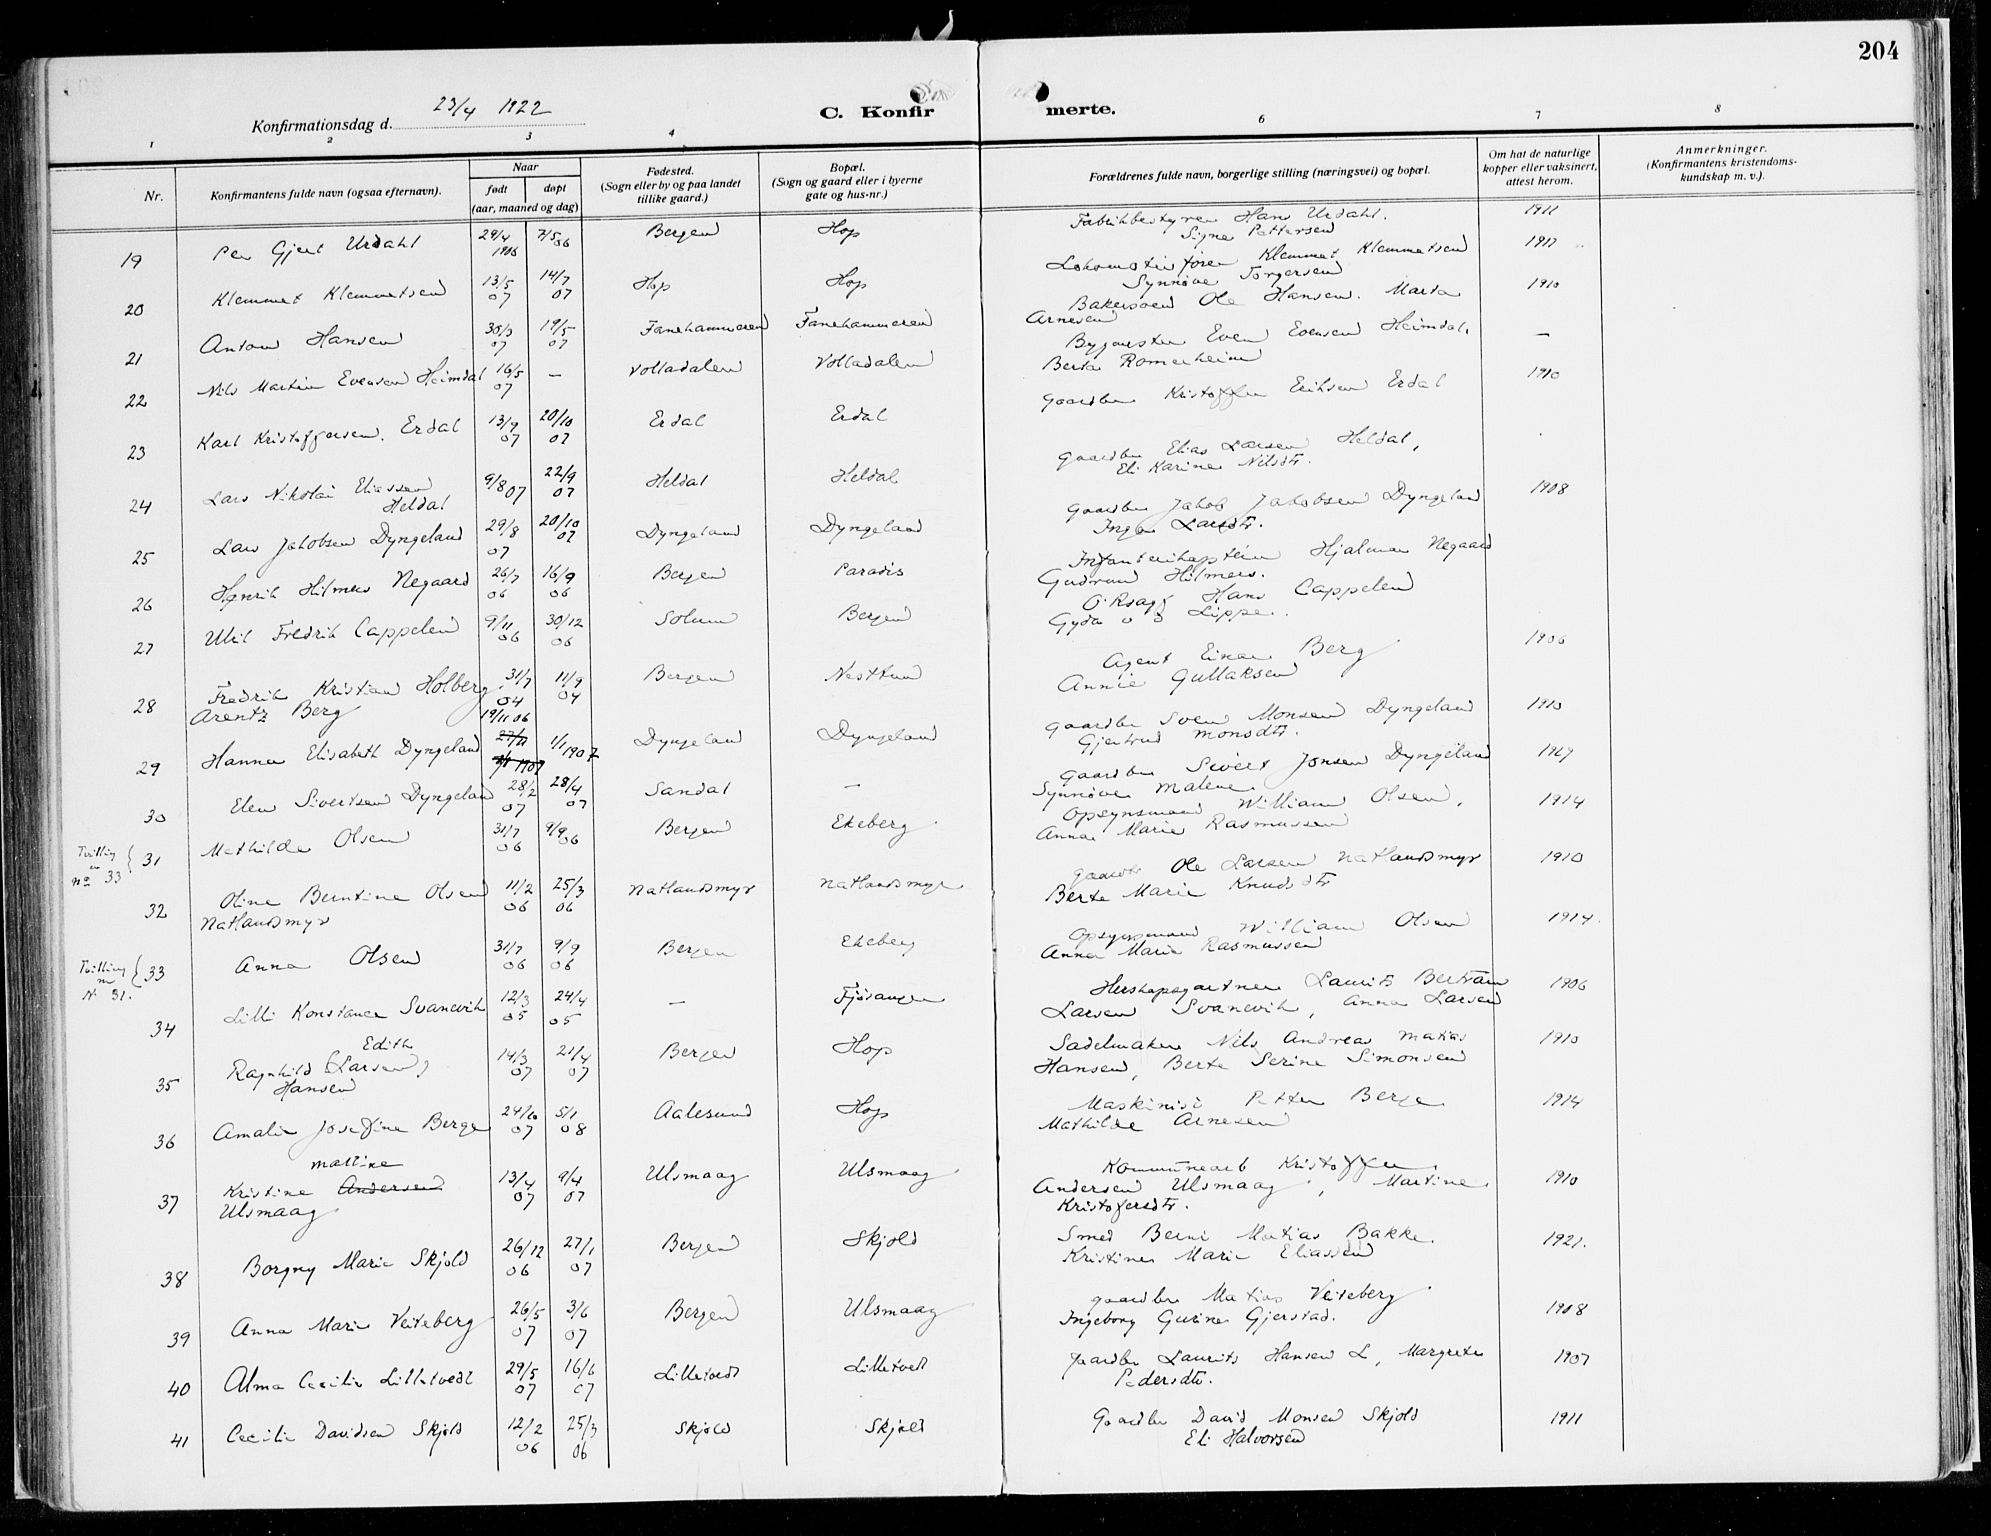 204
Konfirmationsdag d. 23/4 1922
C. Konfir merte.
1 2 3 4 6 7 8
Nr.
Konfirmantens fulde navn (ogsaa efternavn).
Naar
født døpt
(aar, maaned og dag)
Fødested.
(Sogn eller by og paa landet
tillike gaard.)
Bopæl.
(Sogn og gaard eller i byerne
gate og hus-nr.)
Forældrenes fulde navn, borgerlige stilling (næringsvei) og bopæl.
Om hat de naturlige
kopper eller vaksinert,
attest herom.
Anmerkninger.
(Konfirmantens kristendoms-
kundskap m. v.).
19 Per Gjert Urdahl 29/4 1906 7/5 06 Bergen Hop Fabrikbestyrer Hans Urdahl. 1911
Signe Pettersen
20 Klemmet Klemmetsen 13/5 07 14/7 07 Hop Hop Lokomotivfører Klemmet Klemmetsen
Synnøve Torgersen
21 Anton Hansen 30/3 07 19/5 07 Fanehammeren Fanehammeren Bakersvend Ole Hansen. Marta 1910
Arnesen
22 Nils Martin Evensen Heimdal 16/5 07 — Volladalen Volladalen Bygmester Even Evensen Heimdal. —
Berta Romerheim
23 Karl Kristoffersen Erdal 13/9 07 20/10 07 Erdal Erdal Gaardbr Kristoffer Eriksen Erdal 1910
24 Lars Nikolai Eliassen 9/8 07 22/9 07 Heldal Heldal Gaardbr Elias Larsen Heldal,
Heldal Eli Karine Nilsdtr.
25 Lars Jakobsen Dyngeland 29/8 07 20/10 07 Dyngeland Dyngeland Gaardbr Jakob Jakobsen Dyngeland 1908
Inga Larsdtr.
26 Henrik Hilmers Negaard 26/7 06 16/9 06 Bergen Paradis Infanterikaptein Hjalmar Negaard
Gudrun Hilmers.
27 Ulik Fredrik Cappelen 9/11 06 30/12 06 Solum Bergen O.Rsagf Hans Cappelen
Gyda v d Lippe.
28 Fredrik Kristian Holberg 31/7 04 11/9 04 Bergen Nesttun Agent Einar Berg 1906
Arentz Berg Annie Gullaksen
29 Hanna Elisabeth Dyngeland 19/11 06 1/1 1907 Dyngeland Dyngeland Gaardbr Sven Monsen Dyngeland 1910
Gjertrud Monsdtr.
30 Elen Sivertsen Dyngeland 28/2 07 28/4 07 Sandal — Gaardbr Sivert Jonsen Dyngeland
Synnøve Malene
Tvilling m No 33 31 Mathilde Olsen 31/7 06 9/9 06 Bergen Ekeberg Opsynsmand William Olsen. 1914
Anna Marie Rasmussen
32 Oline Berntine Olsen 11/2 06 25/3 06 Natlandsmyr Natlandsmyr Gaardbr Ole Larsen Natlandsmyr 1910
Natlandsmyr Berte Marie Knudsdtr
Tvilling m N. 31. 33 Anna Olsen 31/7 06 9/9 06 Bergen Ekeberg Opsynsmand William Olsen 1914.
Anna Marie Rasmussen
34 Lilli Konstance Svanevik 12/3 05 24/4 05 — Fjøsanger Herskapsgartner Laurits Bertram 1906
Larsen Svanevik, Anna Larsen
35 Ragnhild Edith (Larsen) 14/3 07 21/4 07 Bergen Hop Sadelmaker Nils Andreas Matias 1910
Hansen Hansen, Berte Serine Simonsen
36 Amalie Josefine Berge 24/10 07 5/1 08 Aalesund Hop Maskinist Petter Berge 1914
Mathilde Arnesen
37 Kristine Martine Andersen 13/4 07 9/4 07 Ulsmaag Ulsmaag Kommunearb Kristoffer
Ulsmaag Andersen Ulsmaag, Martine 1910
Kristofersdtr.
38 Borgny Marie Skjold 26/12 06 27/1 07 Bergen Skjold Smed Berni Matias Bakke. 1921.
Kristine Marie Eliassen
39 Anna Marie Veiteberg 26/5 07 3/6 07 Bergen Ulsmaag Gaardbr Matias Veiteberg 1908
Ingeborg Gurine Gjerstad.
40 Alma Cecilie Lilletvedt 29/5 07 16/6 07 Lilletvedt Lilletvedt Gaardbr Laurits Hansen L, Margrete 1907
Pedersdtr.
41 Cecilie Davidsen Skjold 12/2 06 25/3 06 Skjold Skjold Gaardbr David Monsen Skjold 1911
Eli Halvorsen